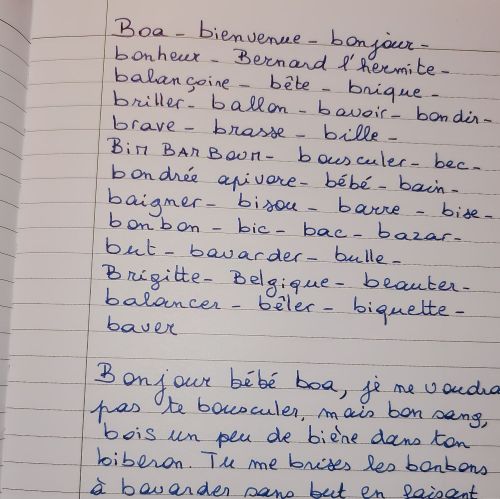 Boa - bienvenue - bonjour -
bonheur - Bernard l'hermite -
balançoire - bête - brique -
briller - ballon - bavoir - bondir -
brave - brasse - bille -
BIM BAM BOUM - bousculer - bec -
bondrée apivore - bébé - bain -
baigner - bisou - barre - bise -
bonbon - bic - bac - bazar -
but - bavarder - bulle -
Brigitte - Belgique - beauter -
balancer - bêler - biquette -
baver
Bonjour bébé boa, je ne voudra
pas te bousculer, mais bon sang,
bois un peu de bière dans ton
biberon. Tu me brises les bonbons
à bavarder sans but en faisant